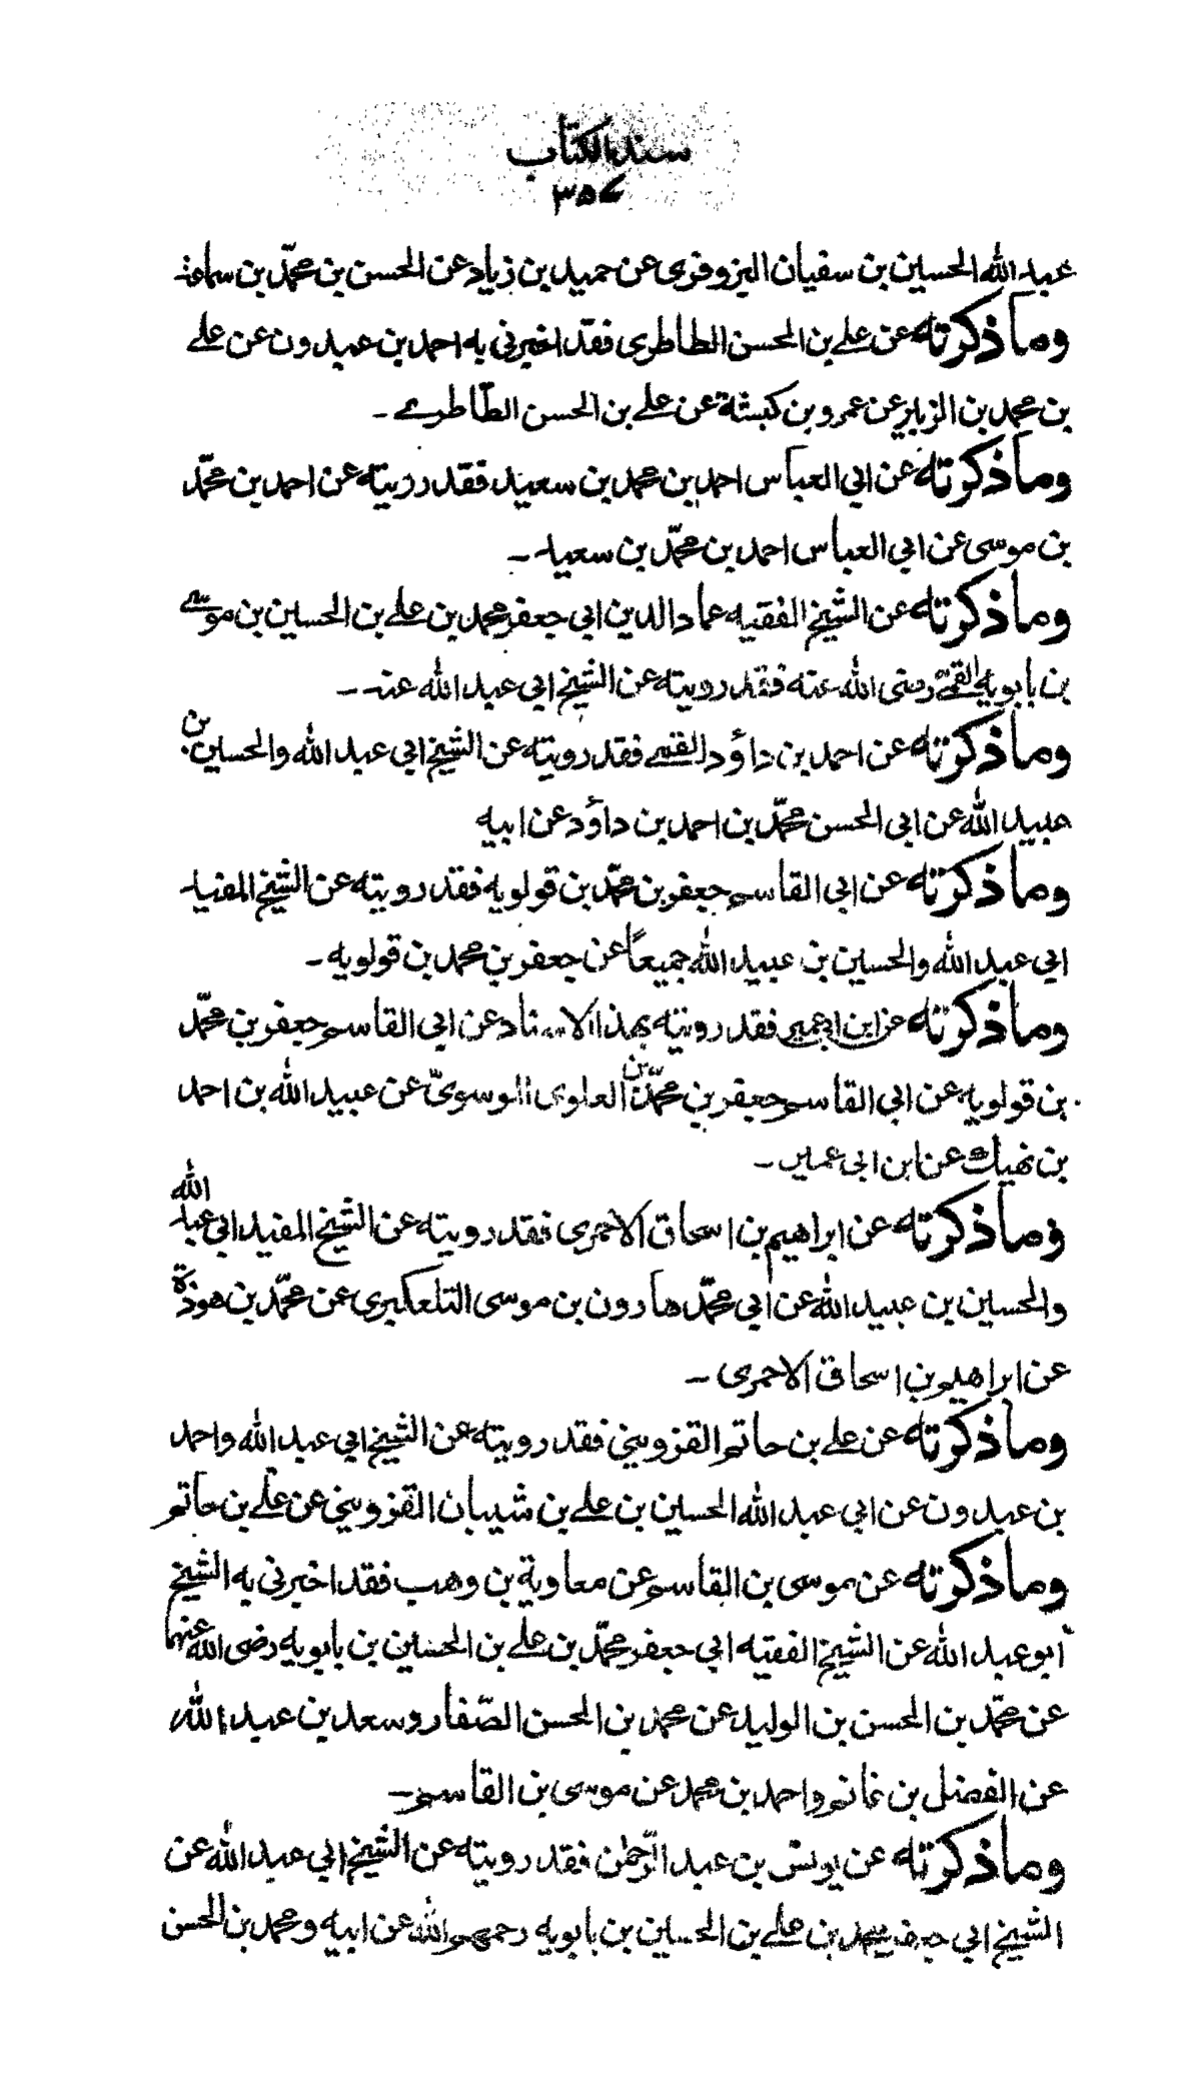 سند الكتاب
٣٥٤
عبد الله الحسين بن سفيان البزوفرى عن حميد بن زياد عن الحسن بن محمّد بن سماعة
وما ذكرته عن علے بن الحسن الطاطرى فقد اخبرنى به احمد بن عبدون عن علے
بن محمد بن الزبير عن عمرو بن كبشة عن علے بن الحسن الطّاطرے ـ
وما ذكرته عن ابي العباس احمد بن محمد بن سعيد فقد رويته عن احمد بن محمّد
بن موسى عن ابي العباس احمد بن محمّد بن سعيد ـ
وما ذكرته عن الشيخ الفقيه عماد الدين ابي جعفر محمد بن علے بن الحسين بن موسے
بن بابويه القمّے رضى الله عنه فقد رويته عن الشيخ ابي عبد الله عنه ـ
وما ذكرته عن احمد بن داؤد القمے فقد رويته عن الشيخ ابي عبد الله والحسين بن
عبيد الله عن ابي الحسن محمّد بن احمد بن داؤد عن ابيه
وما ذكرته عن ابي القاسم جعفر بن محمّد بن قولويه فقد رويته عن الشيخ المفيد
ابي عبد الله والحسين بن عبيد الله جميعاً عن جعفر بن محمد بن قولويه ـ
وما ذكرته عن ابن ابي عمير فقد رويته بهذا الاسناد عن ابي القاسم جعفر بن محمّد
بن قولويه عن ابي القاسم جعفر بن محمّد بن العلوى الموسوىّ عن عبيد الله بن احمد
بن نهيك عن ابن ابي عمير ـ
وما ذكرته عن ابراهيم بن اسحاق الاحمرى فقد رويته عن الشيخ المفيد ابي عبد الله
والحسين بن عبيد الله عن ابي محمّد هارون بن موسى التلعكبرى عن محمّد بن هوذة
عن ابراهيم بن اسحاق الاحمرى ـ
وما ذكرته عن علے بن حاتم القزوينى فقد رويته عن الشيخ ابي عبد الله واحمد
بن عبدون عن ابي عبد الله الحسين بن علے بن شيبان القزوينى عن علّے بن حاتم
وما ذكرته عن موسى بن القاسم عن معاوية بن وهب فقد اخبرنى به الشيخ
ابو عبد الله عن الشيخ الفقيه ابي جعفر محمّد بن علے بن الحسين بن بابويه رضى الله عنهما
عن محمّد بن الحسن بن الوليد عن محمد بن الحسن الصّفار وسعد بن عبد الله
عن الفضل بن غانم واحمد بن محمد عن موسى بن القاسم ـ
وما ذكرته عن يونس بن عبد الرّحمٰن فقد رويته عن الشيخ ابي عبد الله عن
الشيخ ابي جعفر محمد بن علے بن الحسين بن بابويه رحمهم الله عن ابيه ومحمد بن الحسن